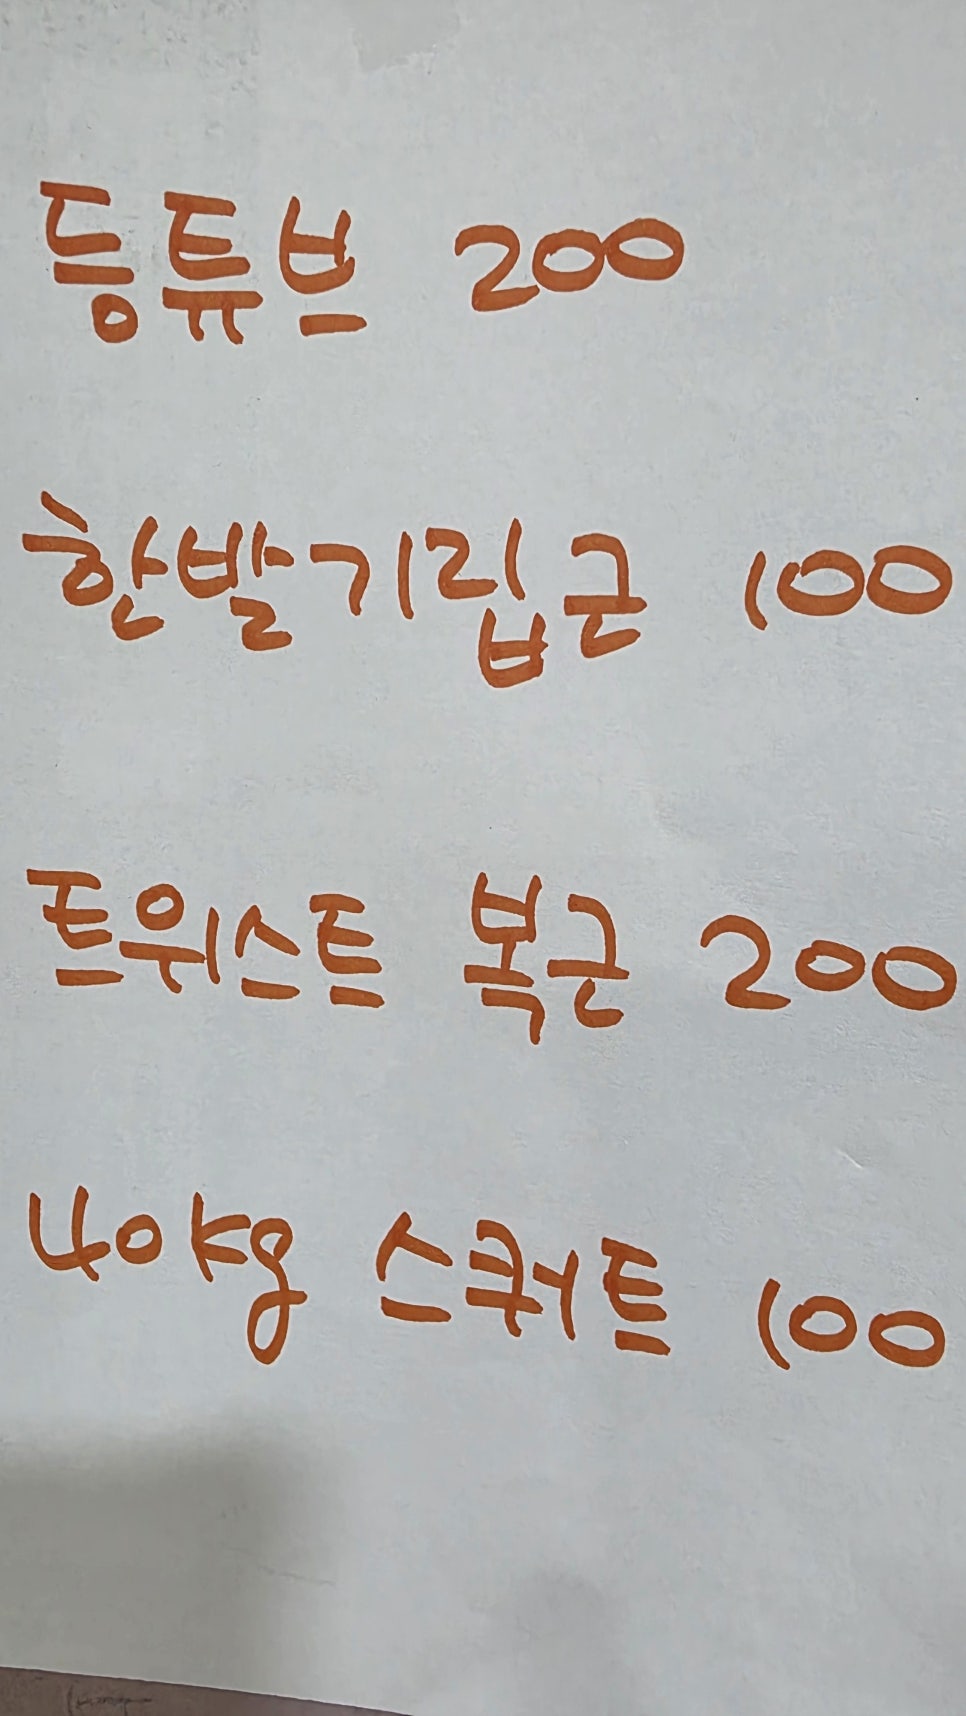 등튜브 200
한발기립근 100
트위스트 복근 200
40kg 스쿼트 100